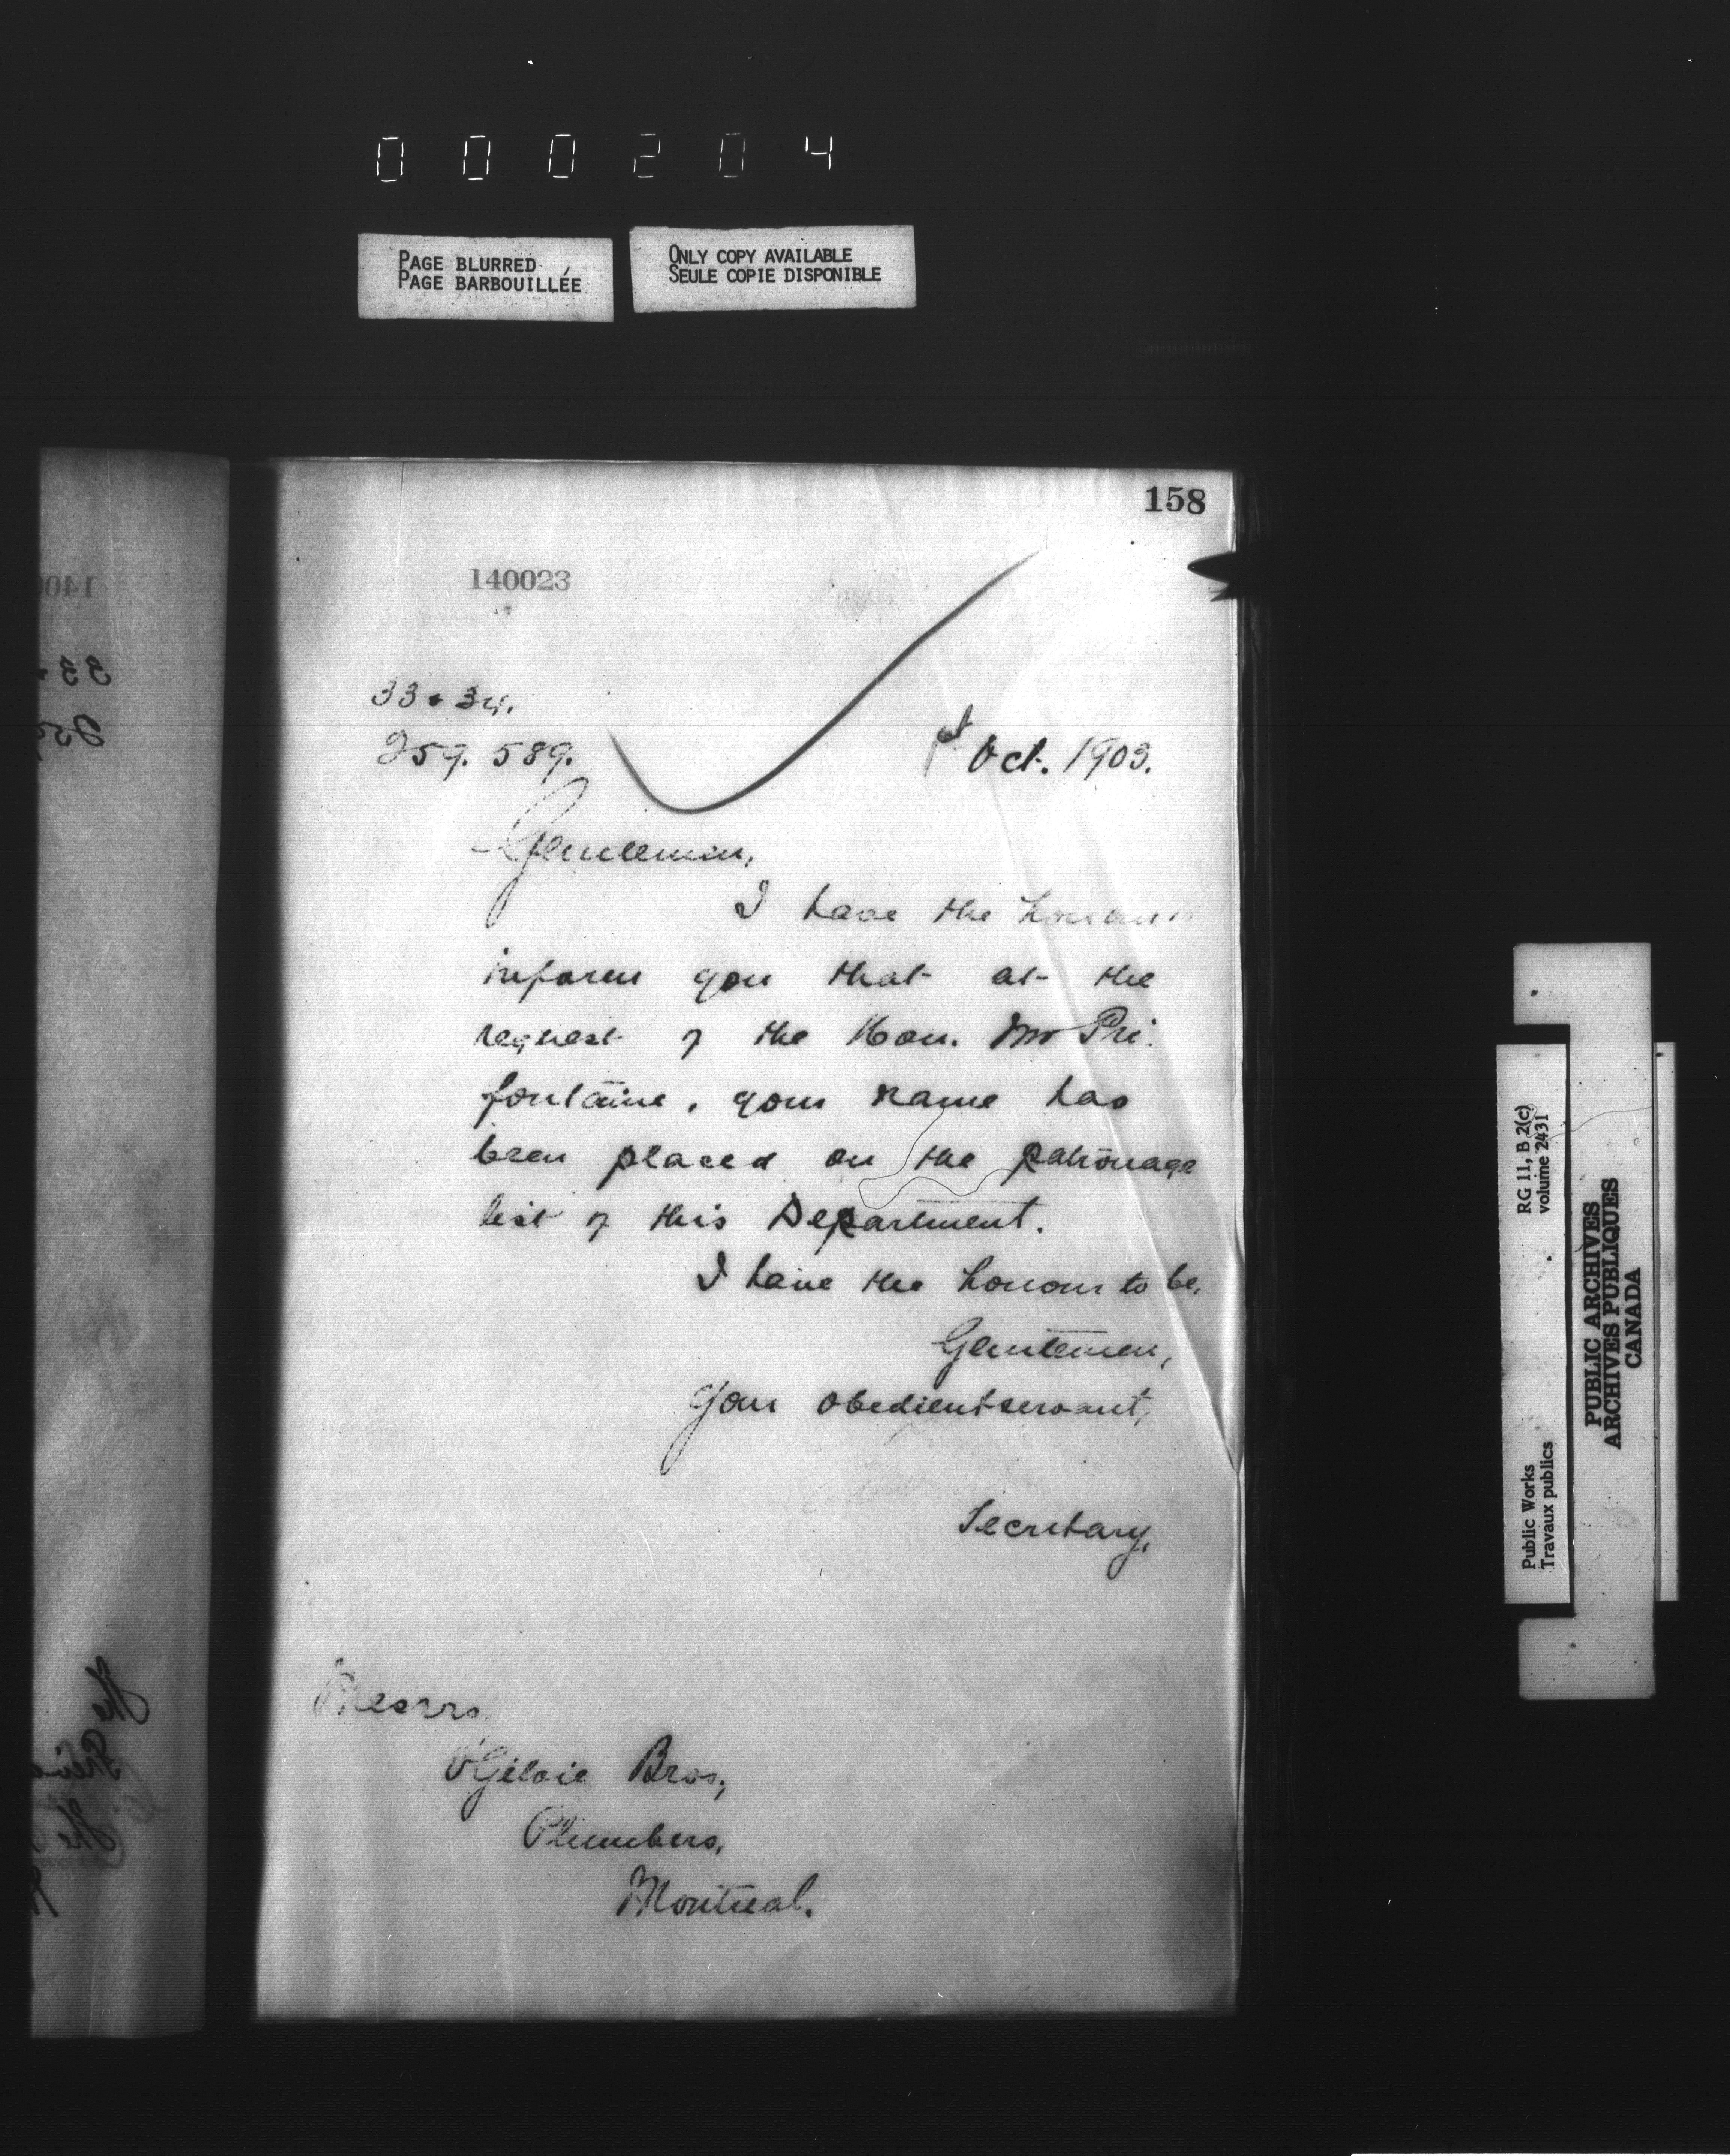 000204
PAGE BLURRED
PAGE BARBOUILLÉE
ONLY COPY AVAILABLE
SEULE COPIE DISPONIBLE
158
140023
33 & 34.
259. 589.
1st Oct. 1903.
Gentlemen,
I have the honour to
inform you that at the
request of the Hon. Mr Pré-
fontaine, your name has
been placed on the patronage
list of this Department.
I have the honour to be,
Gentlemen,
Your obedient servant,
Secretary.
Messrs
O'Gilvie Bros,
Plumbers,
Montreal.
RG 11, B 2(c)
volume 2431
Public Works
Travaux publics
PUBLIC ARCHIVES
ARCHIVES PUBLIQUES
CANADA